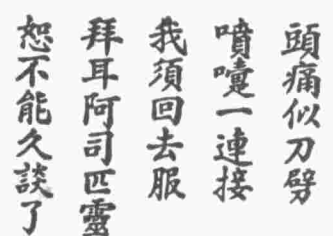 頭痛似刀劈
噴嚏一連接
我須回去服
拜耳阿司匹靈
恕不能久談了